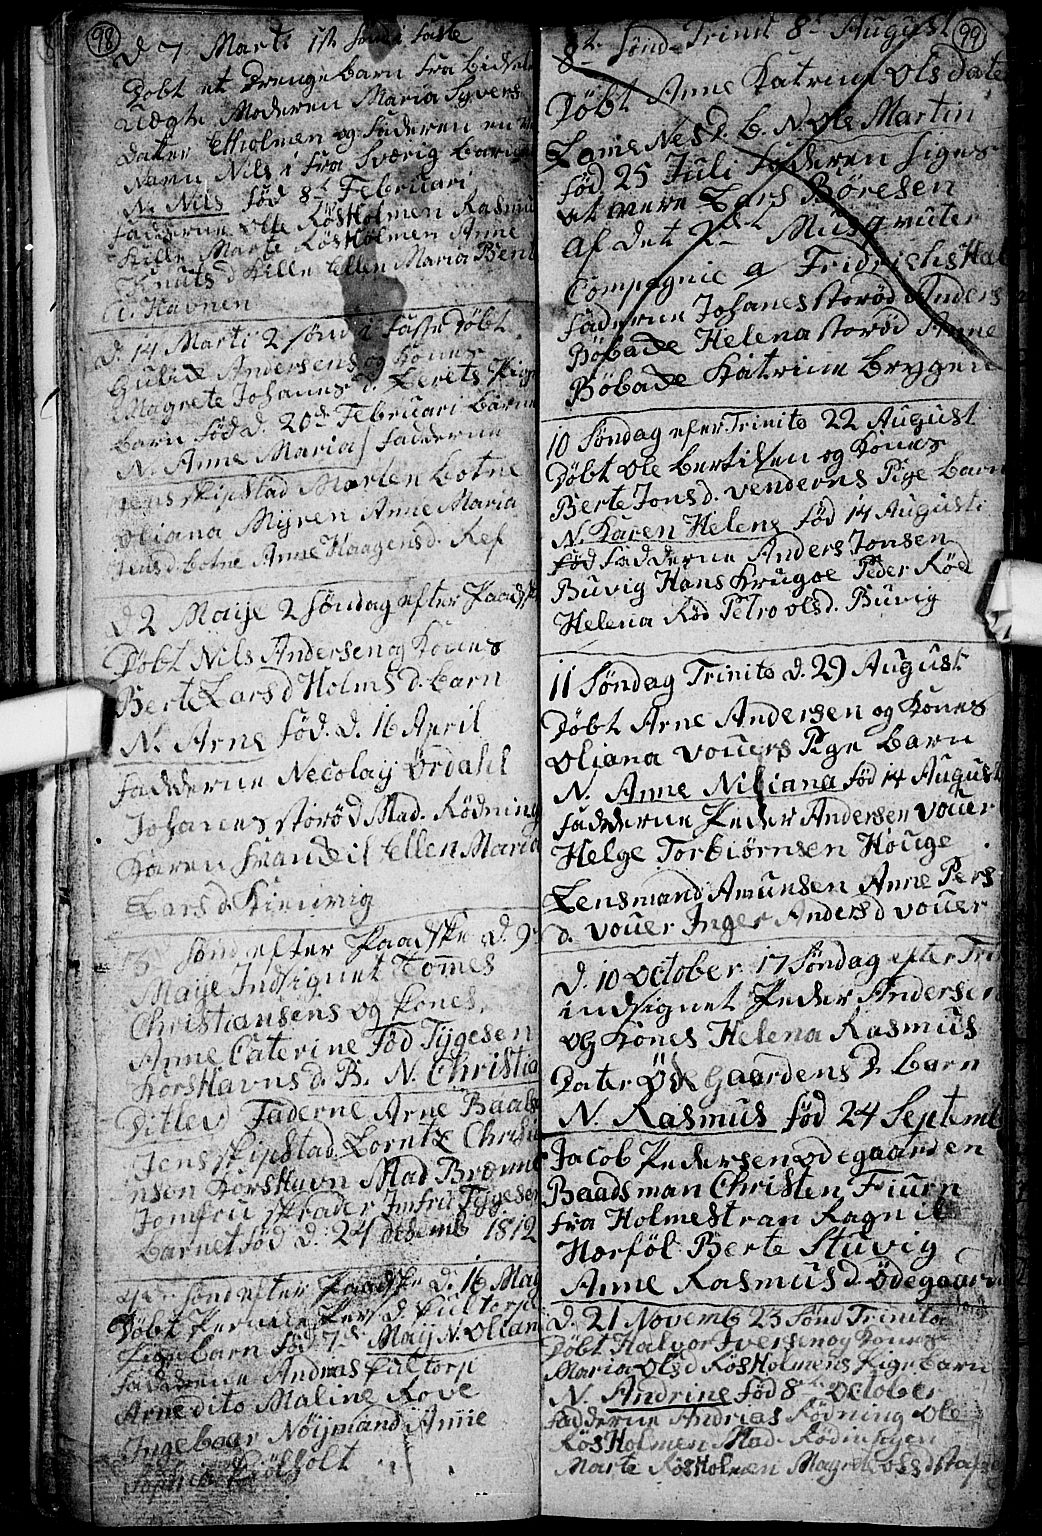 98
d 7 Marti 1st Sønd i faste
Døbt et Drengebarn fra Hidsel
uægte Moderen Maria Syvers
dater Etholmen og faderen en
Navn Nils i fra Sverig barn
N. Nils fød 8t Februari
fadderne Olle KøsHolmen Rasmus
Kille Marte KøsHolmen Anne
Knuts d Kille Ellen Maria Bent
d. Havnen
d. 14 Martii 2 Sønd i faste Døbt
Gulich Andersens og Kones
Magrete Johanes d. Lerets Pige
barn fød d. 20de Februari barne
N. Anne Maria / fadderne
Jens Skipstad Morten botne
Oliana Myren Anne Maria
Jens d. botne Anne Haagens d. Ref
d 2 Maije 2 Søndag efter Paadske
Døbt Nils Andersen og Kones
Berte Lars d Holms d. barn
N. Arne fød. d. 16 April
fadderne Necolay Ørdahl
Johanes Storød Mad. Rødning
Karen Ellen Maria
Lars d Kinnvig
3de Sønd efter Paadske d. 9
Maije Indsignet Tommes
Christiansens og Kones
Anne Caterine fød Tygesen
KorsHavns d. B. N. Christia
Ditlev Faderne Arne Baals
Jens Skipstad Lorntz Christi
ansen KorsHavn Mad Brønne
Jomfru Skrader Jmfru Tygesen
barnet fød d. 24 desemb 1812
4de Sønd efter Paadske d. 16 Maij
Døbt Pers d Pultorp
Pige barn fød 7de Maij N. Olian
fadderne Andras Pultorp
Arne dito Maline Rove
Ingebaar Nøijmand Anne
Sophie Rølholt
99
8t Sønd Trinit 8t August
Døbt Anne Katrine Olsdater
Lamie Nes d. b. N Ole Martin
fød 25 Juli faderen siges
at vere Lars Børesen
af det 2de Musqvuter
Compagnie a FridrichsHal
faderne Johanes Storød Anders
Bøbade Helena Storød Anne
Bøbade Katrine bryggen
10 Søndag efter Trinito 22 August
Døbt Ole bertilsen og Kones
Berte Jons d. venderns Pige barn
N. Karen Helene fød 14 Augusti
fød fadderne Anders Jonsen
Buvig Hans Krugoe Peder Rød
Helena Rød Petro ols d. Buvig
11 Søndag Trinito d. 29 August
Døbt Arne Andersen og Kones
Oliana vouers Pige barn
N. Anne Niliana fød 14 August
fadderne Peder Andersen vouer
Helge Torbiørnsen Houge
Lensmand Amunsen Anne Pers
d. vouer Inger Anders d vouer
d. 10 October 17 Søndag efter Trin
indsignet Peder Andersen
og Kones Helena Rasmus
Dater Øde Gaardens D. barn
N. Rasmus fød 24 Septemb
Jacob Pedersen ødegaarden
Baadsman Christen Fiurn
fra Holmestran Ragnil
Hærføl Berte Stuvig
Anne Rasmus d. Ødegaarn
d. 21 Novemb 23 Sønd Trinito
Døbt Halvor Iversen og Kones
Maria Ols d KøsHolmens Pige barn
N. Andrine fød 8de October
fadderne Andrias Rødning Ole
KøsHolmen Mad. Rødningen
Marte KøsHolmen Magrete ols d